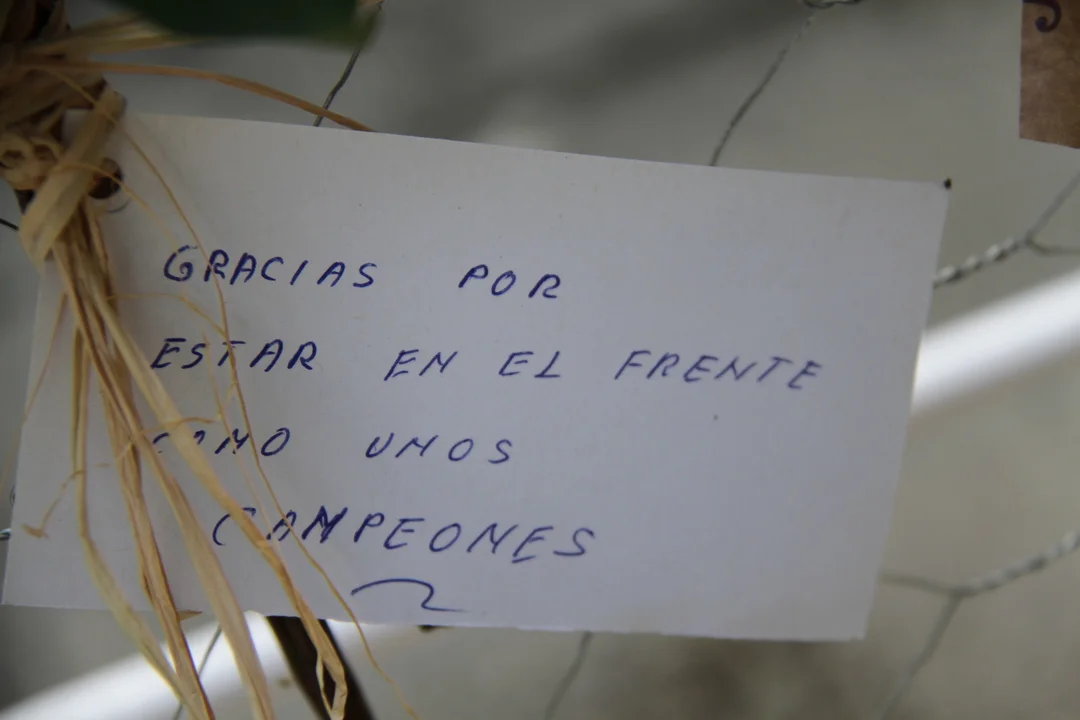 GRACIAS POR
ESTAR EN EL FRENTE
COMO UNOS
CAMPEONES